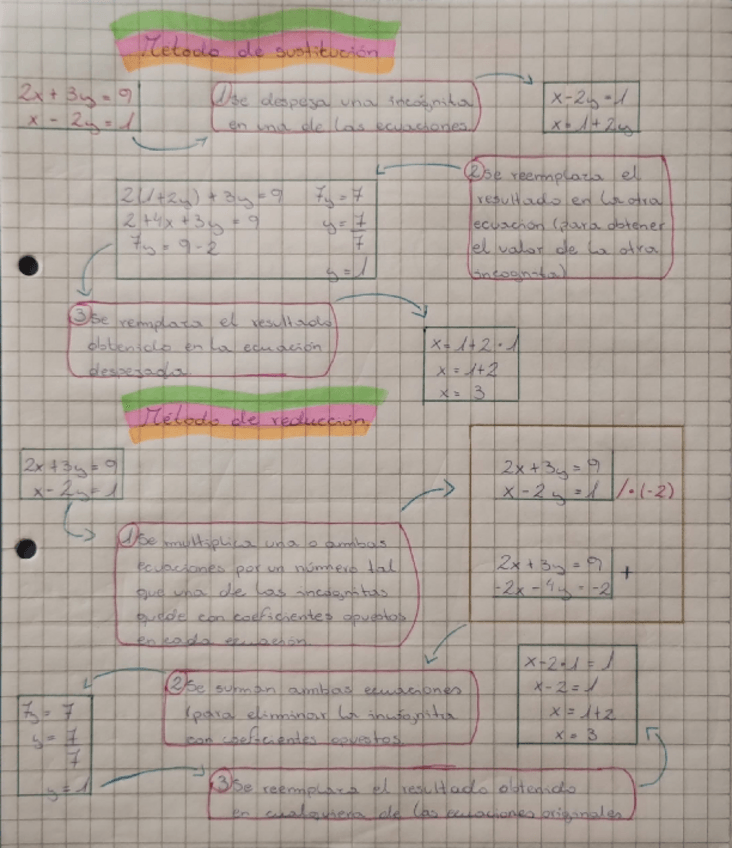 Método de sustitución
2x + 3y = 9
x - 2y = 1
① Se despeja una incógnita
en una de las ecuaciones
x - 2y = 1
x = 1 + 2y
② Se reemplaza el
resultado en la otra
ecuación (para obtener
el valor de la otra
incognita)
2(1+2y) + 3y = 9
2 + 4x + 3y = 9
7y = 9 - 2
7y = 7
y = 7
7
y = 1
③ Se remplaza el resultado
obtenido en la ecuación
despejada
x = 1 + 2 · 1
x = 1 + 2
x = 3
Método de reducción
2x + 3y = 9
x - 2y = 1
① Se multiplica una o ambas
ecuaciones por un número tal
que una de las incógnitas
quede con coeficientes opuestos
en cada ecuación
2x + 3y = 9
x - 2y = 1 / · (-2)
2x + 3y = 9 +
-2x - 4y = -2
② Se suman ambas ecuaciones
(para eliminar la incógnita
con coeficientes opuestos
7y = 7
y = 7
7
y = 1
③ Se reemplaza el resultado obtenido
en cualquiera de las ecuaciones originales
x - 2 · 1 = 1
x - 2 = 1
x = 1 + 2
x = 3